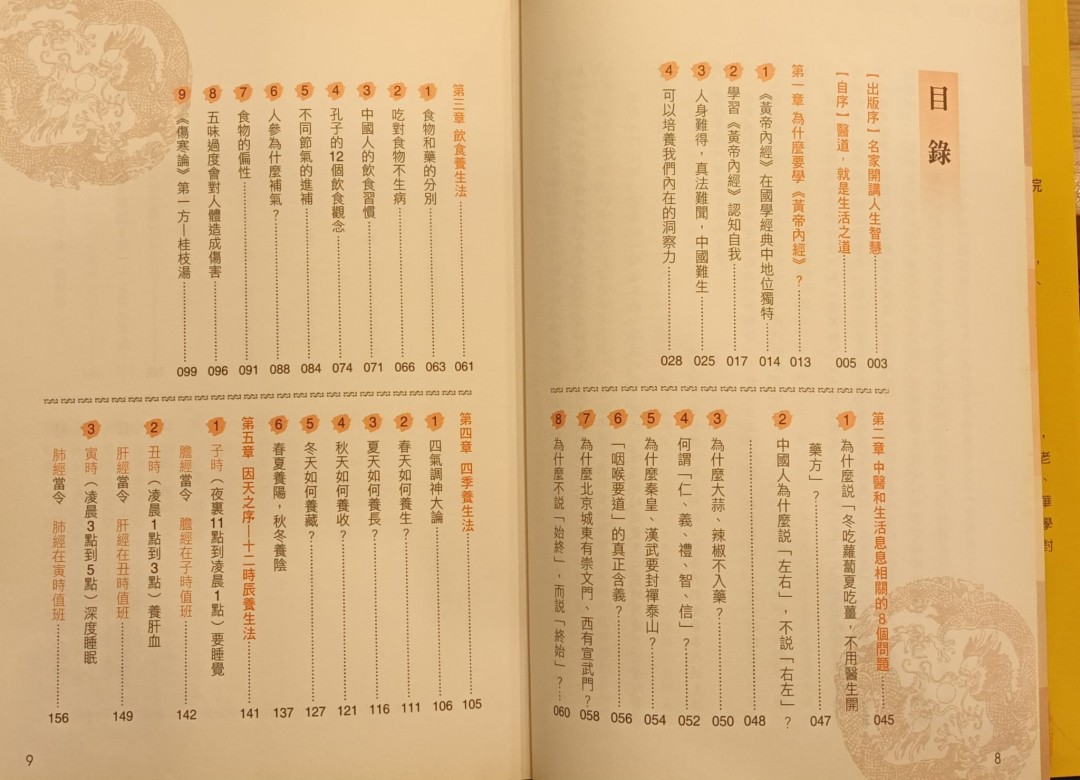 目錄
【出版序】名家開講人生智慧……003
【自序】醫道，就是生活之道……005
第一章 為什麼要學《黃帝內經》？……013
1 《黃帝內經》在國學經典中地位獨特……014
2 學習《黃帝內經》認知自我……017
3 人身難得，真法難聞，中國難生……025
4 可以培養我們內在的洞察力……028
第二章 中醫和生活息息相關的8個問題……045
1 為什麼說「冬吃蘿蔔夏吃薑，不用醫生開
藥方」？……047
2 中國人為什麼說「左右」，不說「右左」？
……048
3 為什麼大蒜、辣椒不入藥？……050
4 何謂「仁、義、禮、智、信」？……052
5 為什麼秦皇、漢武要封禪泰山？……054
6 「咽喉要道」的真正含義？……056
7 為什麼北京城東有崇文門、西有宣武門？058
8 為什麼不說「始終」，而說「終始」？……060
8
第三章 飲食養生法……061
1 食物和藥的分別……063
2 吃對食物不生病……066
3 中國人的飲食習慣……071
4 孔子的12個飲食觀念……074
5 不同節氣的進補……084
6 人參為什麼補氣？……088
7 食物的偏性……091
8 五味過度會對人體造成傷害……096
9 《傷寒論》第一方—桂枝湯……099
第四章 四季養生法……105
1 四氣調神大論……106
2 春天如何養生？……111
3 夏天如何養長？……116
4 秋天如何養收？……121
5 冬天如何養藏？……127
6 春夏養陽，秋冬養陰……137
第五章 因天之序—十二時辰養生法……141
1 子時（夜裏11點到凌晨1點）要睡覺
膽經當令 膽經在子時值班……142
2 丑時（凌晨1點到3點）養肝血
肝經當令 肝經在丑時值班……149
3 寅時（凌晨3點到5點）深度睡眠
肺經當令 肺經在寅時值班……156
9